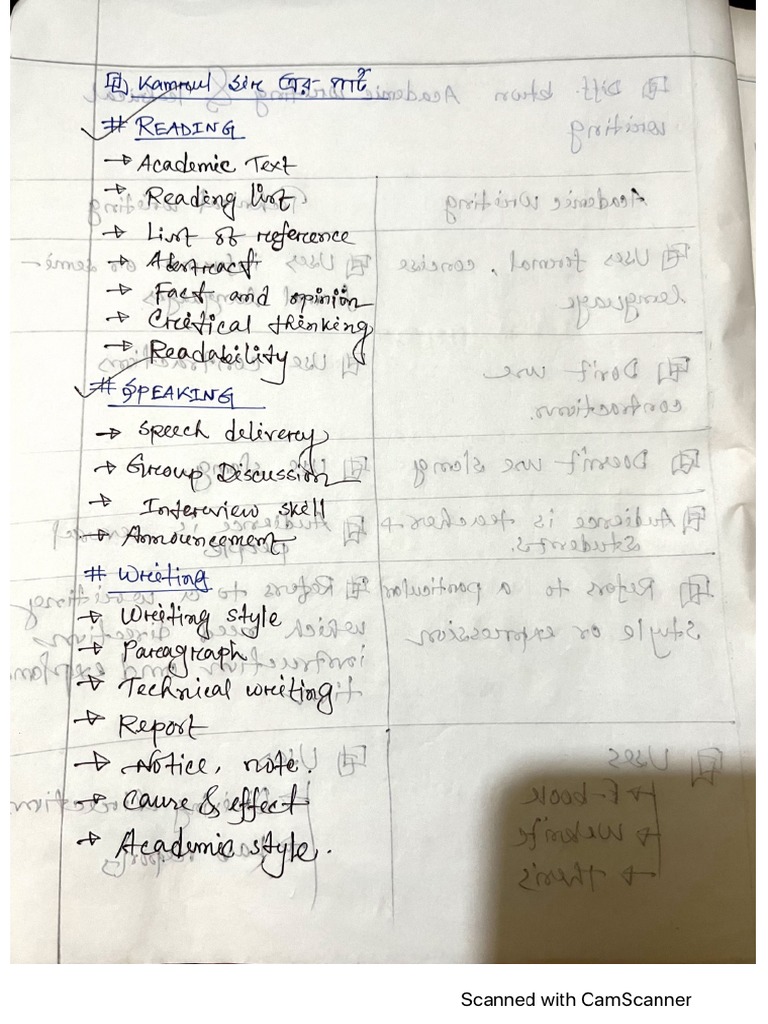 Kamroul Sir এর পার্ট
# READING
→ Academic Text
→ Reading list
→ List of reference
→ Abstract
→ Fact and opinion
→ Critical thinking
→ Readability
# SPEAKING
→ Speech delivery
→ Group Discussion
→ Interview skill
→ Announcement
# Writing
→ Writing style
→ Paragraph
→ Technical writing
→ Report
→ Notice, note.
→ Cause & effect
→ Academic style.
Scanned with CamScanner